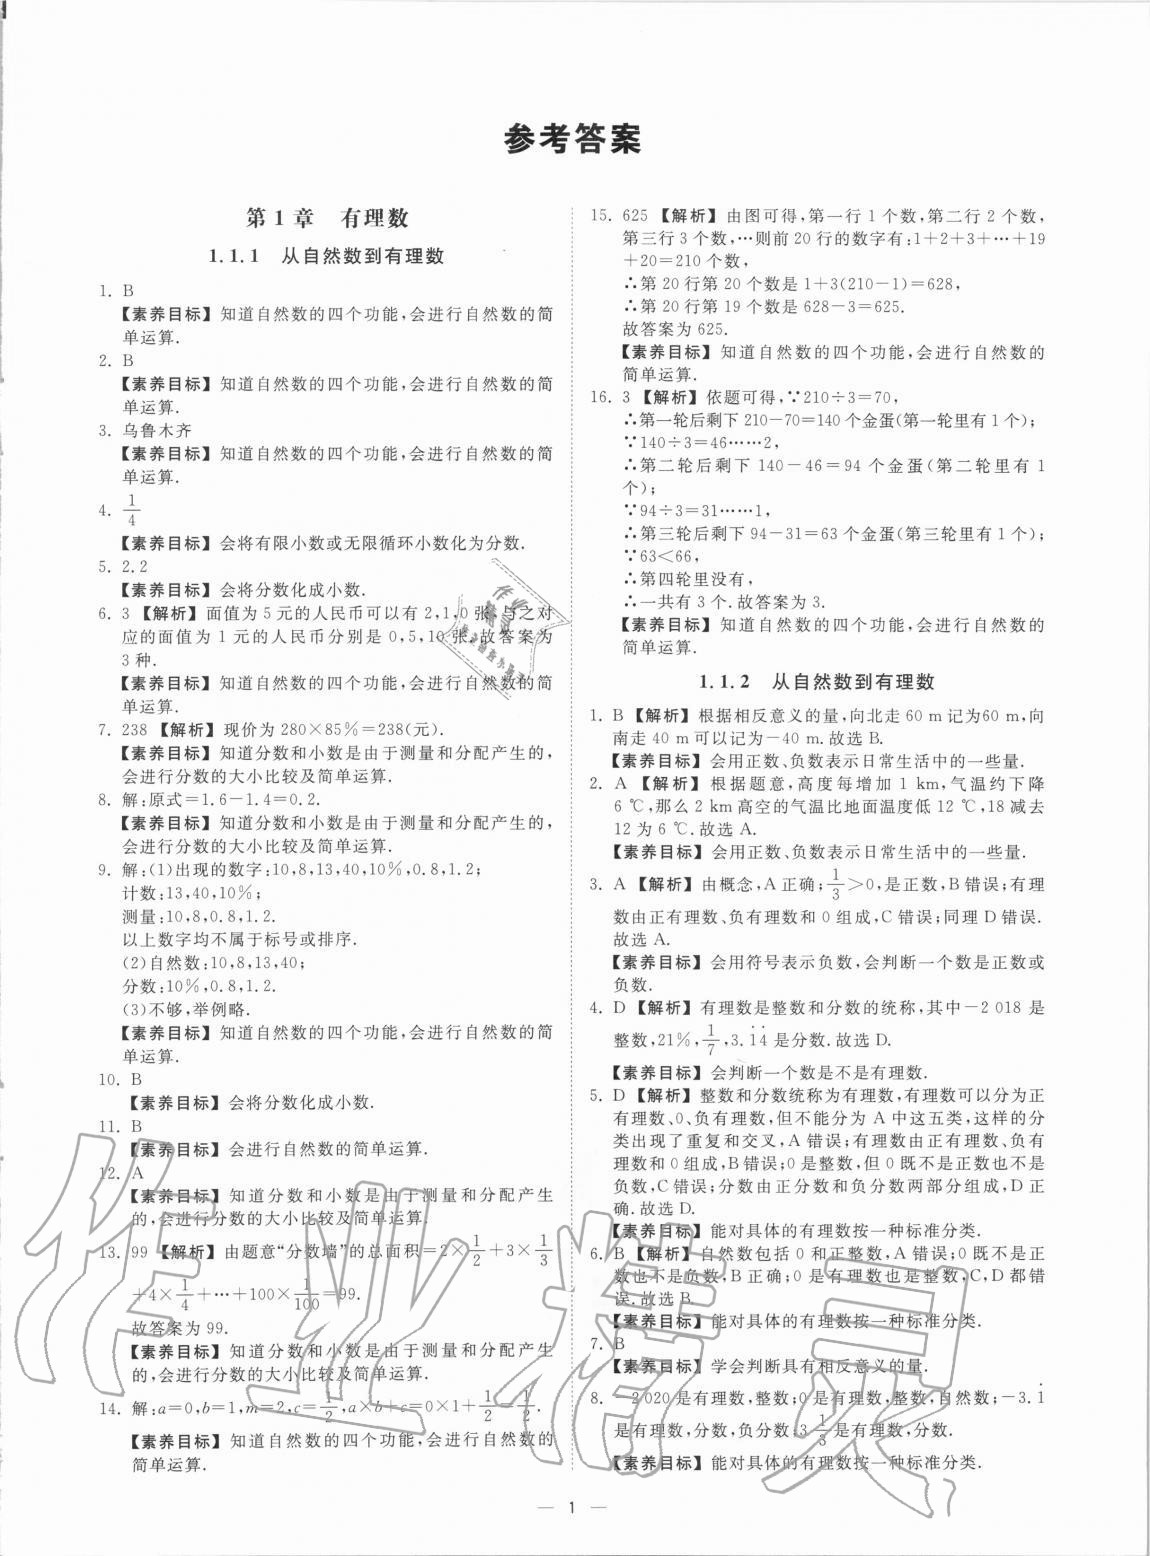 参考答案
第1章 有理数
1.1.1 从自然数到有理数
1. B
【素养目标】知道自然数的四个功能,会进行自然数的简
单运算.
2. B
【素养目标】知道自然数的四个功能,会进行自然数的简
单运算.
3. 乌鲁木齐
【素养目标】知道自然数的四个功能,会进行自然数的简
单运算.
4. 1/4
【素养目标】会将有限小数或无限循环小数化为分数.
5. 2.2
【素养目标】会将分数化成小数.
6. 3 【解析】面值为5元的人民币可以有2,1,0张,与之对
应的面值为1元的人民币分别是0,5,10张,故答案为
3种.
【素养目标】知道自然数的四个功能,会进行自然数的简
单运算.
7. 238 【解析】现价为280×85%=238(元).
【素养目标】知道分数和小数是由于测量和分配产生的,
会进行分数的大小比较及简单运算.
8. 解:原式=1.6-1.4=0.2.
【素养目标】知道分数和小数是由于测量和分配产生的,
会进行分数的大小比较及简单运算.
9. 解:(1)出现的数字:10,8,13,40,10%,0.8,1.2;
计数:13,40,10%;
测量:10,8,0.8,1.2.
以上数字均不属于标号或排序.
(2)自然数:10,8,13,40;
分数:10%,0.8,1.2.
(3)不够,举例略.
【素养目标】知道自然数的四个功能,会进行自然数的简
单运算.
10. B
【素养目标】会将分数化成小数.
11. B
【素养目标】会进行自然数的简单运算.
12. A
【素养目标】知道分数和小数是由于测量和分配产生
的,会进行分数的大小比较及简单运算.
13. 99 【解析】由题意“分数墙”的总面积=2×1/2+3×1/3
+4×1/4+…+100×1/100=99.
故答案为99.
【素养目标】知道分数和小数是由于测量和分配产生
的,会进行分数的大小比较及简单运算.
14. 解:a=0,b=1,m=2,c=1/2,a×b+c=0×1+1/2=1/2.
【素养目标】知道自然数的四个功能,会进行自然数的
简单运算.
15. 625 【解析】由图可得,第一行1个数,第二行2个数,
第三行3个数,…则前20行的数字有:1+2+3+…+19
+20=210个数,
∴第20行第20个数是1+3(210-1)=628,
∴第20行第19个数是628-3=625.
故答案为625.
【素养目标】知道自然数的四个功能,会进行自然数的
简单运算.
16. 3 【解析】依题可得,∵210÷3=70,
∴第一轮后剩下210-70=140个金蛋(第一轮里有1个);
∵140÷3=46……2,
∴第二轮后剩下140-46=94个金蛋(第二轮里有1
个);
∵94÷3=31……1,
∴第三轮后剩下94-31=63个金蛋(第三轮里有1个);
∵63<66,
∴第四轮里没有,
∴一共有3个.故答案为3.
【素养目标】知道自然数的四个功能,会进行自然数的
简单运算.
1.1.2 从自然数到有理数
1. B 【解析】根据相反意义的量,向北走60 m记为60 m,向
南走40 m可以记为-40 m.故选B.
【素养目标】会用正数、负数表示日常生活中的一些量.
2. A 【解析】根据题意,高度每增加1 km,气温约下降
6 ℃,那么2 km高空的气温比地面温度低12 ℃,18减去
12为6 ℃.故选A.
【素养目标】会用正数、负数表示日常生活中的一些量.
3. A 【解析】由概念,A正确;1/3>0,是正数,B错误;有理
数由正有理数、负有理数和0组成,C错误;同理D错误.
故选A.
【素养目标】会用符号表示负数,会判断一个数是正数或
负数.
4. D 【解析】有理数是整数和分数的统称,其中-2 018是
整数,21%,1/7,3.1̇4̇是分数.故选D.
【素养目标】会判断一个数是不是有理数.
5. D 【解析】整数和分数统称为有理数,有理数可以分为正
有理数、0、负有理数,但不能分为A中这五类,这样的分
类出现了重复和交叉,A错误;有理数由正有理数、负有
理数和0组成,B错误;0是整数,但0既不是正数也不是
负数,C错误;分数由正分数和负分数两部分组成,D正
确.故选D.
【素养目标】能对具体的有理数按一种标准分类.
6. B 【解析】自然数包括0和正整数,A错误;0既不是正
数也不是负数,B正确;0是有理数也是整数,C,D都错
误.故选B.
【素养目标】能对具体的有理数按一种标准分类.
7. B
【素养目标】学会判断具有相反意义的量.
8. -2020是有理数,整数;0是有理数,整数,自然数;-3.1̇
是有理数,分数,负分数;3 1/3是有理数,分数.
【素养目标】能对具体的有理数按一种标准分类.
— 1 —
作业精灵